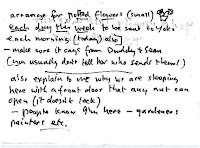 arrange for potted flowers (small)
each day this week to be sent to Yoko
each morning (today also)
- make sure it says from Daddy & Sean
(you usually dont tell her who sends them!)
also explain to me why we are sleeping
here with a front door that any nut can
open (it doesn't lock)
- people know I'm here - gardeners
painters etc.